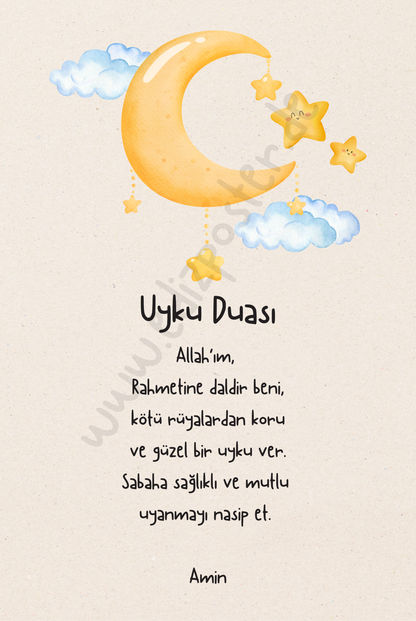 Uyku Duası
Allah'ım,
Rahmetine daldir beni,
kötü rüyalardan koru
ve güzel bir uyku ver.
Sabaha sağlıklı ve mutlu
uyanmayı nasip et.
Amin